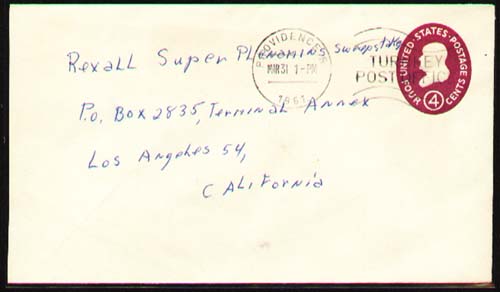 Rexall Super Plenamins Sweepstakes
P.O. Box 2835, Terminal Annex
Los Angeles 54,
California
PROVIDENCE
MAR 31 1-PM
1961
POST
UNITED·STATES·POSTAGE
FOUR 4 CENTS